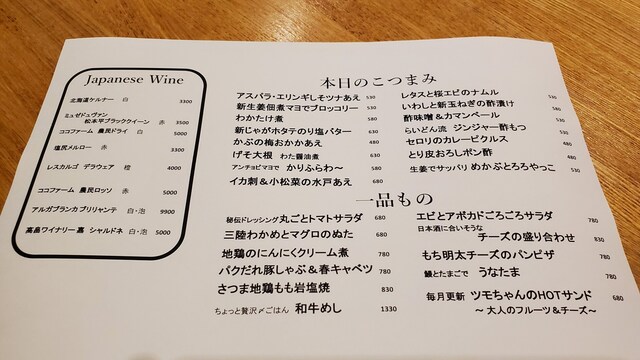 Japanese Wine
北海道ケルナー 白 3300
ミュゼドゥヴァン
松本平ブラッククイーン 赤 3500
ココファーム 農民ドライ 白 5000
塩尻メルロー 赤 3300
レスカルゴ デラウェア 橙 4000
ココファーム 農民ロッソ 赤 5000
アルガブランカ ブリリャンテ 白・泡 9900
高畠ワイナリー 嘉 シャルドネ 白・泡 5000
本日のこつまみ
アスパラ・エリンギしそツナあえ 530
新生姜佃煮マヨでブロッコリー 530
わかたけ煮 580
新じゃがホタテのり塩バター 630
かぶの梅おかかあえ 480
げそ大根 わた醤油煮 630
アンチョビマヨで かりふらわ〜 580
イカ刺&小松菜の水戸あえ 680
レタスと桜エビのナムル 530
いわしと新玉ねぎの酢漬け 580
酢味噌&カマンベール 480
らいどん流 ジンジャー酢もつ 530
セロリのカレーピクルス 480
とり皮おろしポン酢 480
生姜でサッパリ めかぶとろろやっこ 530
一品もの
秘伝ドレッシング 丸ごとトマトサラダ 680
三陸わかめとマグロのぬた 680
地鶏のにんにくクリーム煮 780
バクだれ豚しゃぶ&春キャベツ 780
さつま地鶏もも岩塩焼 830
ちょっと贅沢〆ごはん 和牛めし 1330
エビとアボカドごろごろサラダ 780
日本酒に合いそうな
チーズの盛り合わせ 830
もち明太チーズのパンピザ 780
鰻とたまごで うなたま 780
毎月更新 ツモちゃんのHOTサンド 680
〜 大人のフルーツ&チーズ〜